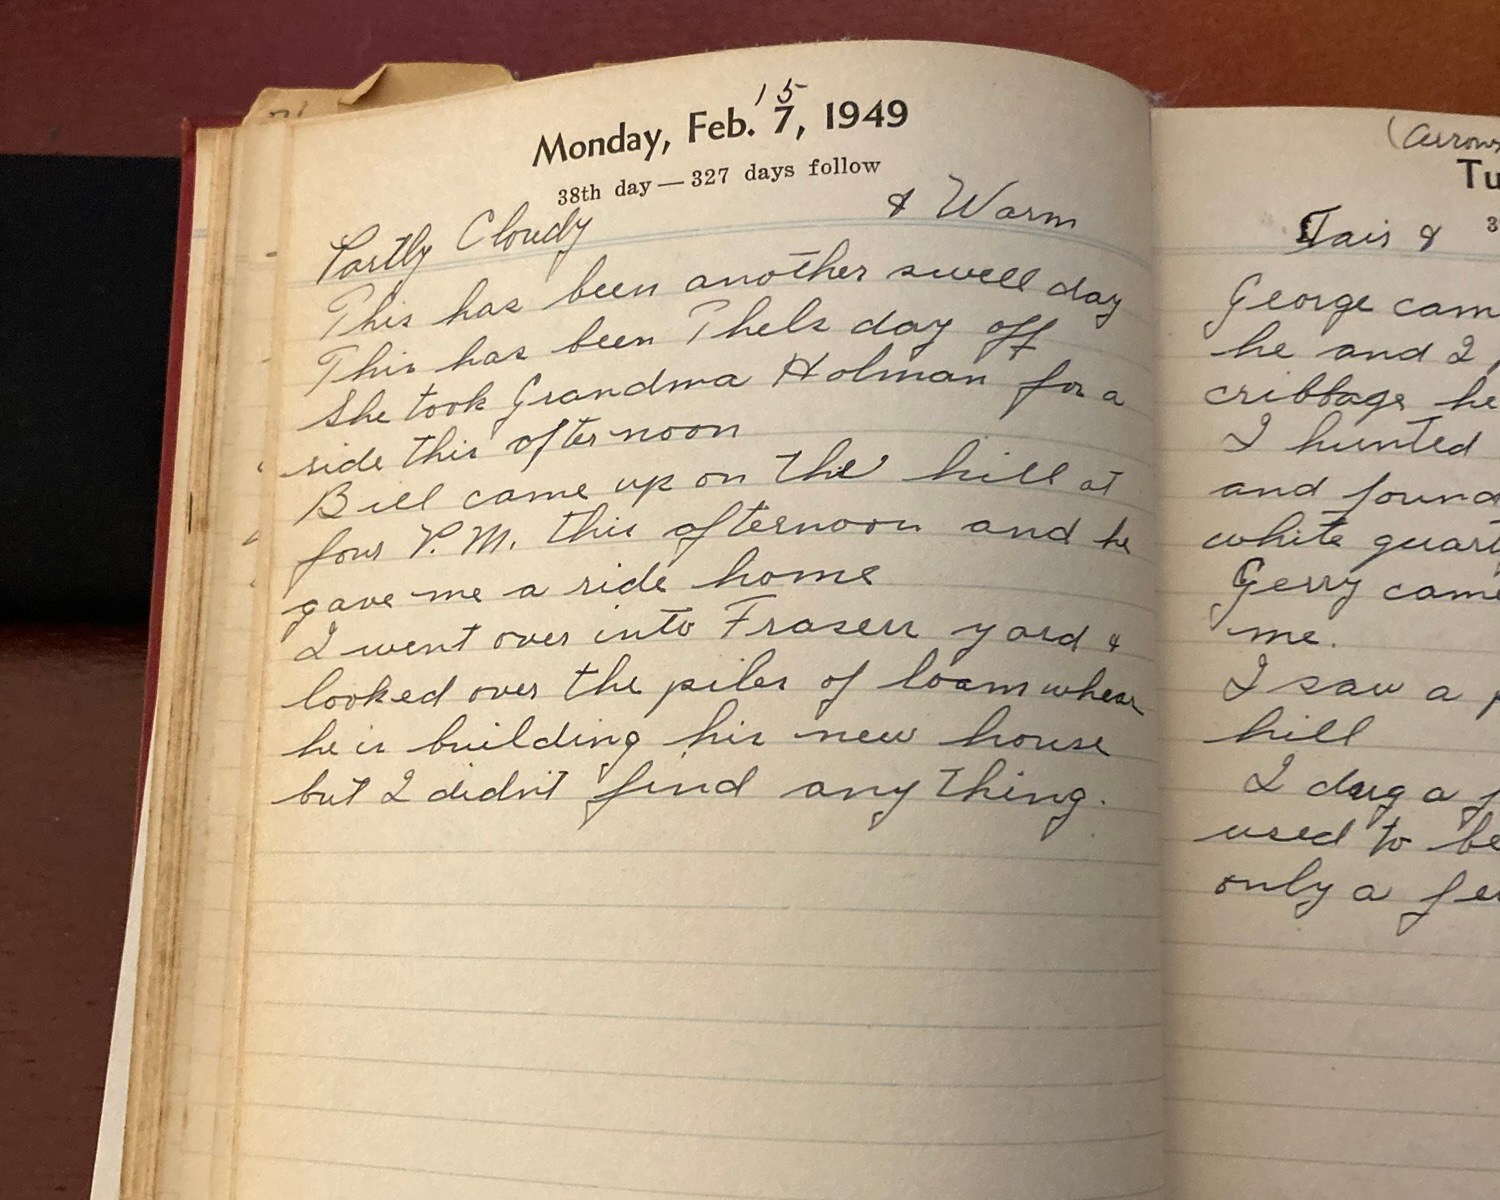 15
Monday, Feb. 7, 1949
38th day — 327 days follow
Partly Cloudy & Warm
This has been another swell day
This has been Thels day off
She took Grandma Holman for a
ride this afternoon
Bill came up on the hill at
four P.M. this afternoon and he
gave me a ride home
I went over into Frasers yard &
looked over the piles of loam whear
he is building his new house
but I didn't find any thing.
(arrow
Tu
3
Fair &
George cam
he and I
cribbage he
I hunted
and found
white quart
Gerry came
me.
I saw a p
hill
I dug a
used to be
only a fe